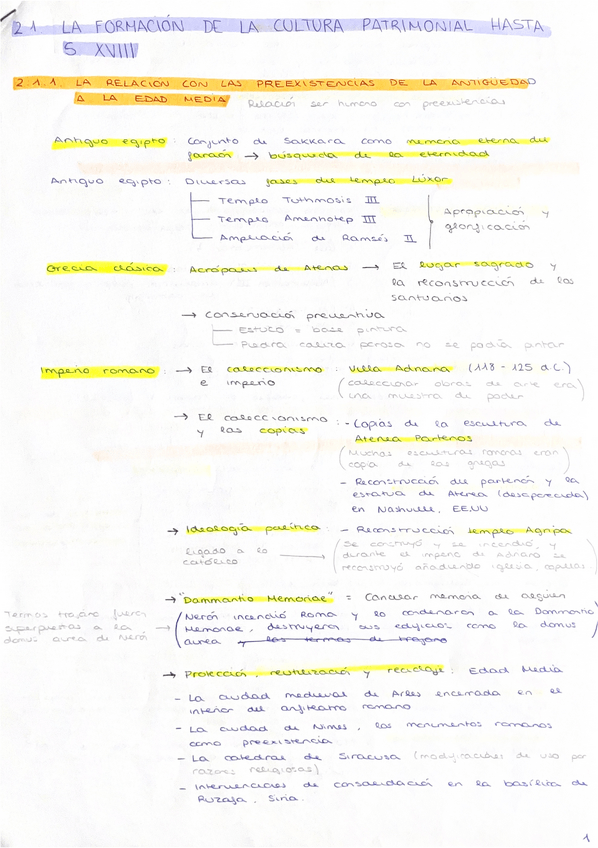 2.1 LA FORMACIÓN DE LA CULTURA PATRIMONIAL HASTA
S. XVIII
2.1.1. LA RELACIÓN CON LAS PREEXISTENCIAS DE LA ANTIGÜEDAD
A LA EDAD MEDIA Relación ser humano con preexistencias
Antiguo egipto: Conjunto de Sakkara como memoria eterna del
faraón → búsqueda de la eternidad
Antiguo egipto: Diversas fases del templo Lúxor
Templo Tuthmosis III
Templo Amenhotep III
Ampliación de Ramsés II
Apropiación y
glorificación
Grecia clásica: Acrópolis de Atenas → El lugar sagrado y
la reconstrucción de los
santuarios
→ Conservación preventiva
Estuco = base pintura
Piedra caliza porosa no se podía pintar
Imperio romano: → El coleccionismo : Villa Adriana (118 - 125 d.C.)
e imperio (coleccionar obras de arte era
una muestra de poder
→ El coleccionismo : - Copias de la escultura de
y las copias Atenea Partenos
(Muchas esculturas romanas eran
copia de las griegas
- Reconstrucción del partenón y la
estatua de Atenea (desaparecida)
en Nashville, EE.UU
→ Ideología política : - Reconstrucción templo Agripa
ligado a lo → (Se construyó y se incendió, y
católico durante el imperio de Adriano se
reconstruyó añadiendo iglesia, capillas
→ "Dammantio Memoriae" = Cancelar memoria de alguien
Termas trajano fueron
superpuestas a la
domus aurea de Nerón
(Nerón incendió Roma y lo condenaron a la Dammantio
Memoriae, destruyeron sus edificios como la domus
aurea y las termas de trajano
→ Protección, reutilización y reciclaje: Edad Media
- La ciudad medieval de Arles encerrada en el
interior del anfiteatro romano
- La ciudad de Nimes, los monumentos romanos
como preexistencia
- La catedral de Siracusa (modificaciones de uso por
razones religiosas)
- Intervenciones de consolidación en la basílica de
Ruzafa, Siria.
1